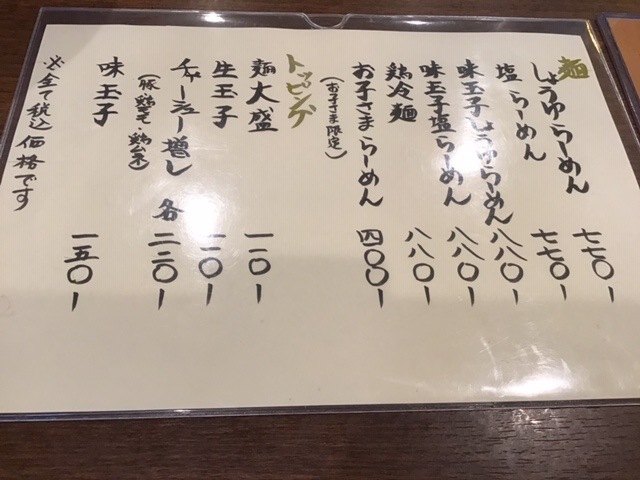 麺
しょうゆらーめん 七七〇ー
塩らーめん 七七〇ー
味玉子しょうゆらーめん 八八〇ー
味玉子塩らーめん 八八〇ー
鶏冷麺 八八〇ー
お子さまらーめん 四〇〇ー
(お子さま限定)
トッピング
麺大盛 一一〇ー
生玉子 一一〇ー
チャーシュー増し 各二二〇ー
味玉子 一五〇ー
全て税込価格です